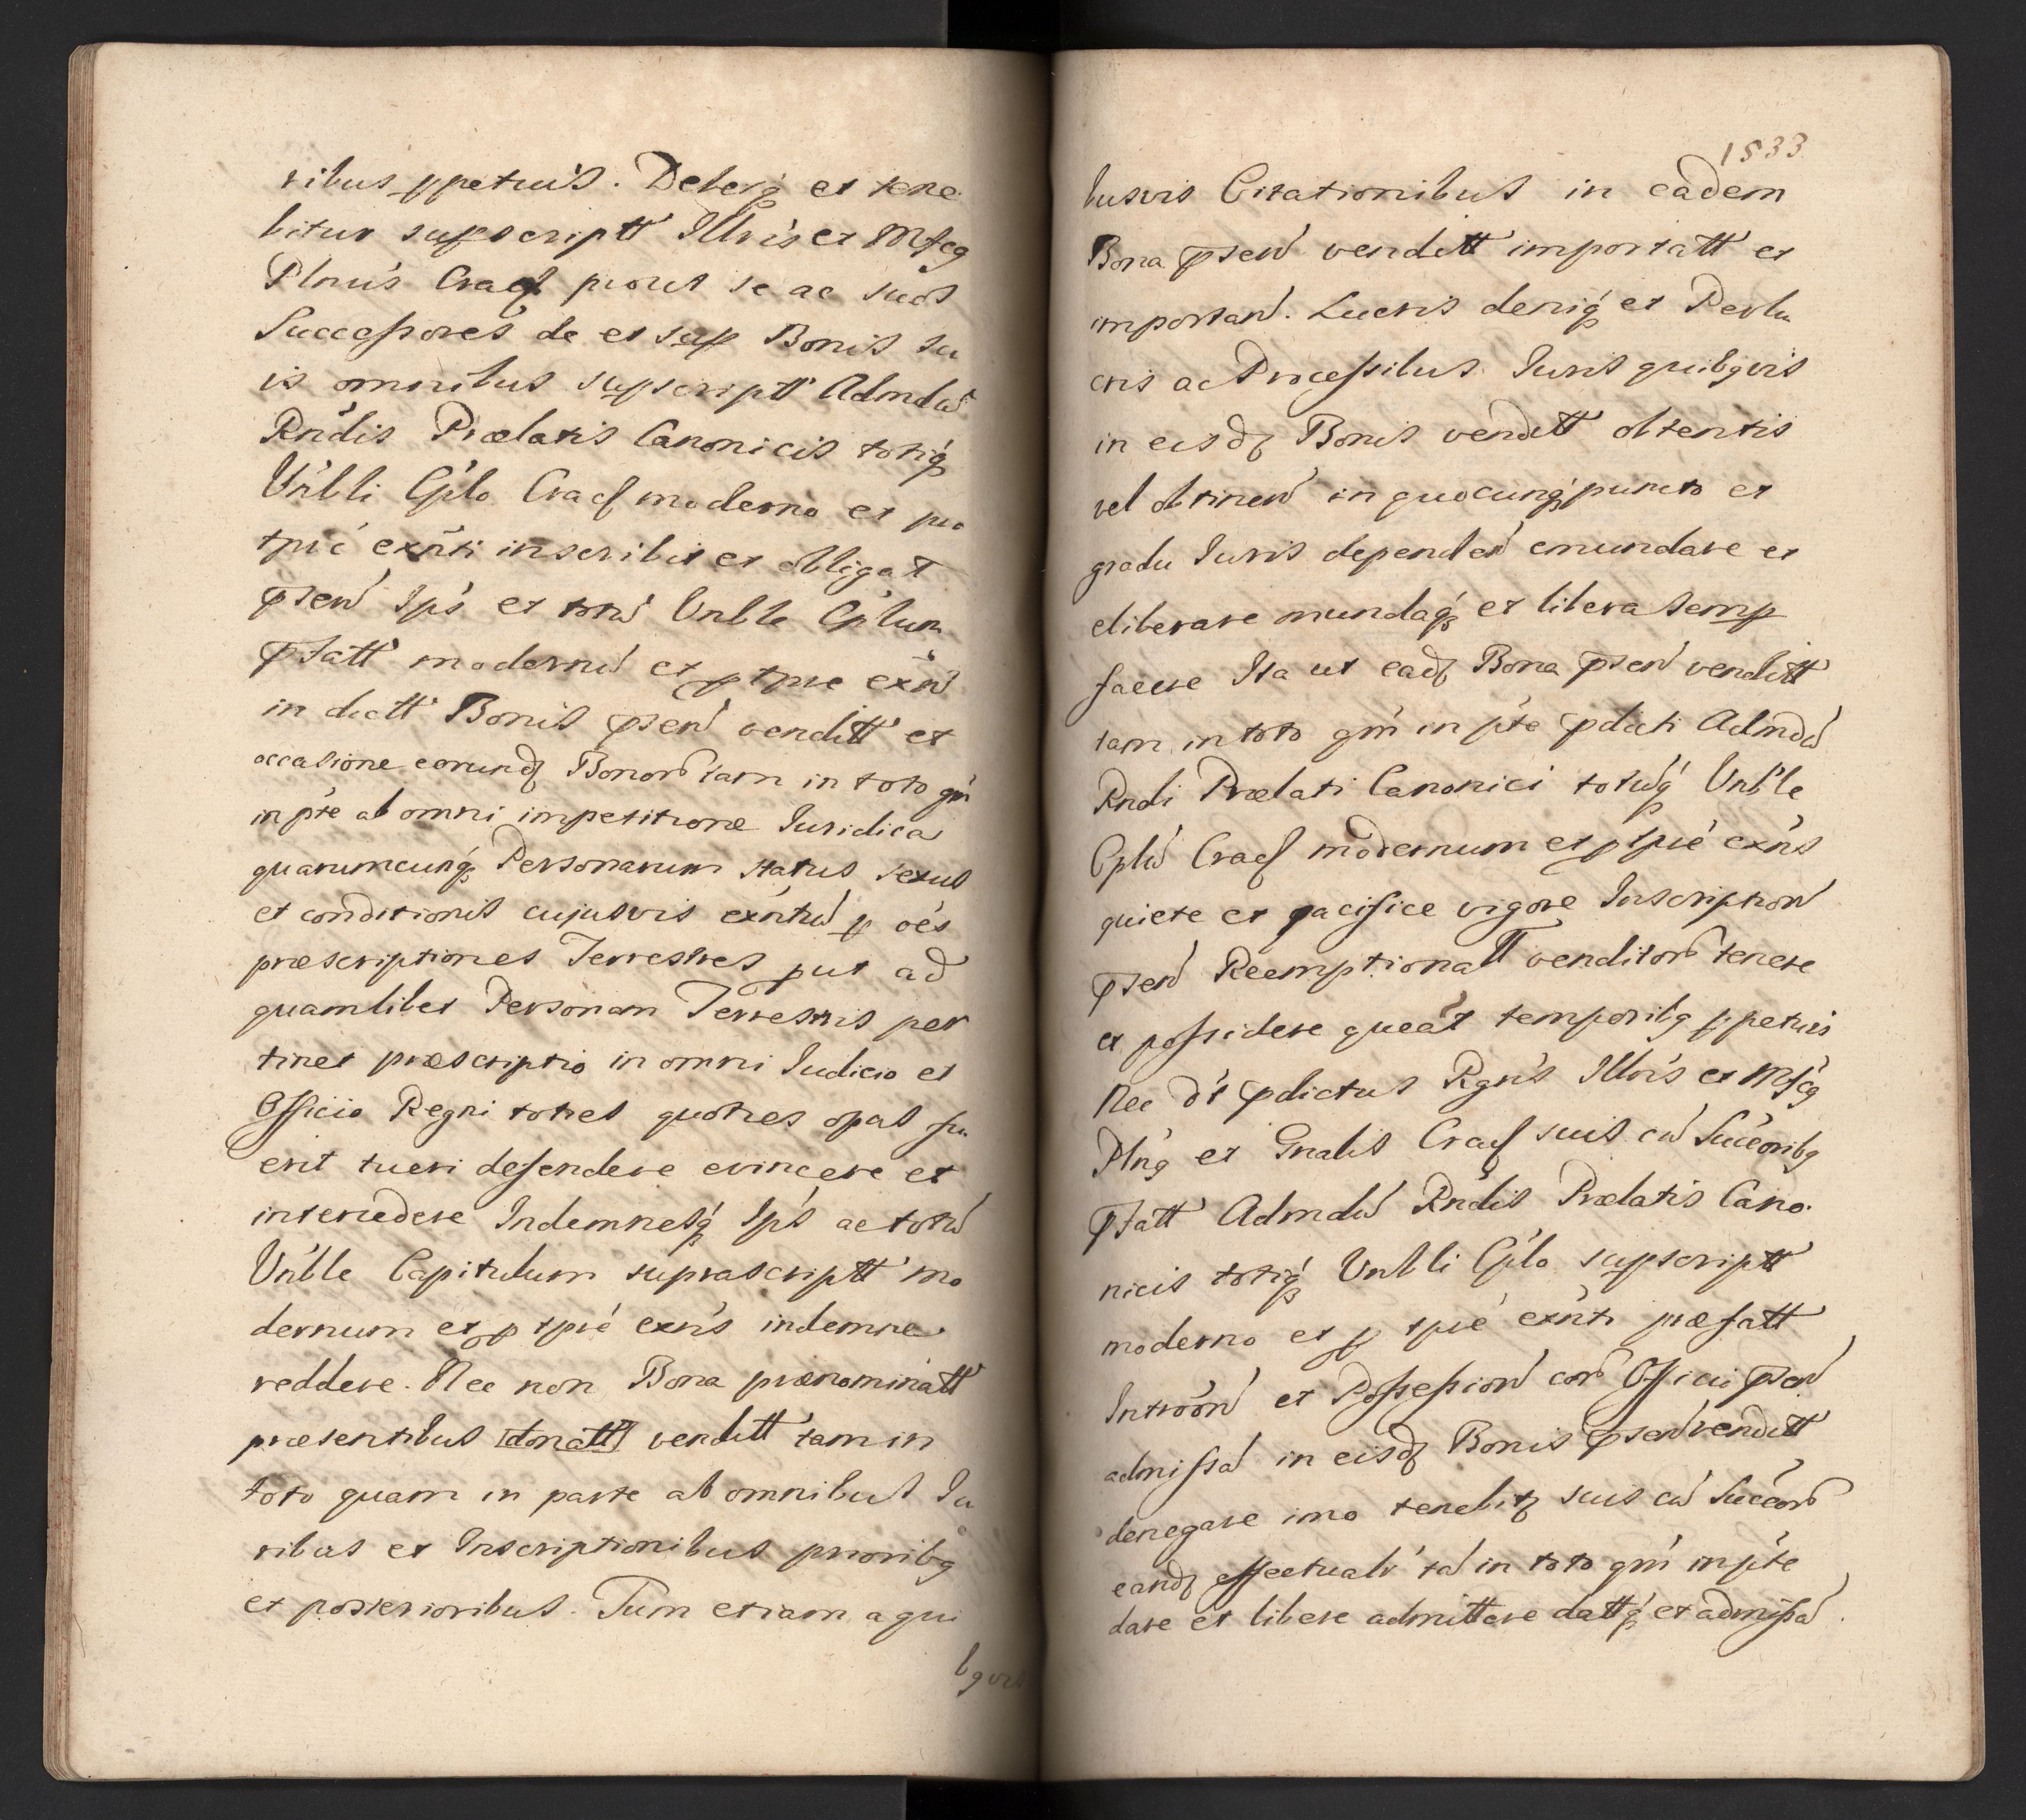 ribus ꝑpetuis. Debebitq́ et tene
bitur supscriptt Illris et Mfcg
Plnus Cracſ prout se ac suos
Successores de et sup Bonis su
is omnibus supscriptt Admdū
Rndis Prælatis Canonicis totiq́
Vnbli Cplo Cracſ moderno et pro
tpre exnti inscribit et obligat
pṙsen Ips et totū Vnble Cplum
pfatt modernū et ꝑ tpre exn̄
in dictt Bonis pṙsen venditt et
occasione eorundꝫ Bonorͫ tam in toto qm
in pte ab omni impetitione Juridica
quarumcunq́ Personarum status sexus
et conditionis cujusvis exntiū ꝑ oēs
præscriptiones Terrestres put ad
quamlibet Personam Terrestris per
tinet præscriptio in omni Judicio et
Officio Regni toties quoties opus fu
erit tueri defendere evincere et
intercedere Indemnesq́ Ips ac totū
Vnble Capitulum suprascriptt mo
dernum et ꝑ tpre exns indemne
reddere. Nec non Bona prænominatt
præsentibus [donatt] venditt tam in
toto quam in parte ab omnibus Ju
ribus et Inscriptionibus prioribꝯ
et posterioribus. Tum etiam a qui
bꝯvis
1533
busvis Citationibus in eadem
Bona pṙsen venditt importatt et
importan. Lucris deniq́ et Perlu
cris ac Processibus Juris quibꝯvis
in eisdꝫ Bonis venditt obtentis
vel obtinen in quocunq́ puncto et
gradu Juris dependen emundare et
eliberare mundaq́ et libera semꝑ
facere Ita ut eadꝫ Bona pṙsen venditt
tam in toto qm in pte pdicti Admdū
Rndi Prælati Canonici totūq́ Vnble
Cplū Cracſ modernum et ꝑ tpre exns
quiete et pacifice vigore Inscription
pṙsen Reemptionalt venditorͫ tenere
et possidere queāt temporibꝯ ꝑpetuis
Nec dt pdictus Rgnis Illris et Mfcꝯ
Plnꝯ et Gnalis Cracſ suis cū Succoribꝯ
pfatt Admdū Rndis Prælatis Cano
nicis totiq́ Vnbli Cplo supscriptt
moderno et ꝑ tpre exnti præfatt
Introōn et Possession corͫ Officii pṙsen
admissā in eisdꝫ Bonis pṙsen venditt
denegare imo tenebitꝫ suis cū Succorͫ
eandꝫ effectualr tā in toto qm in pte
dare et libere admittere dattq́ et admissā.